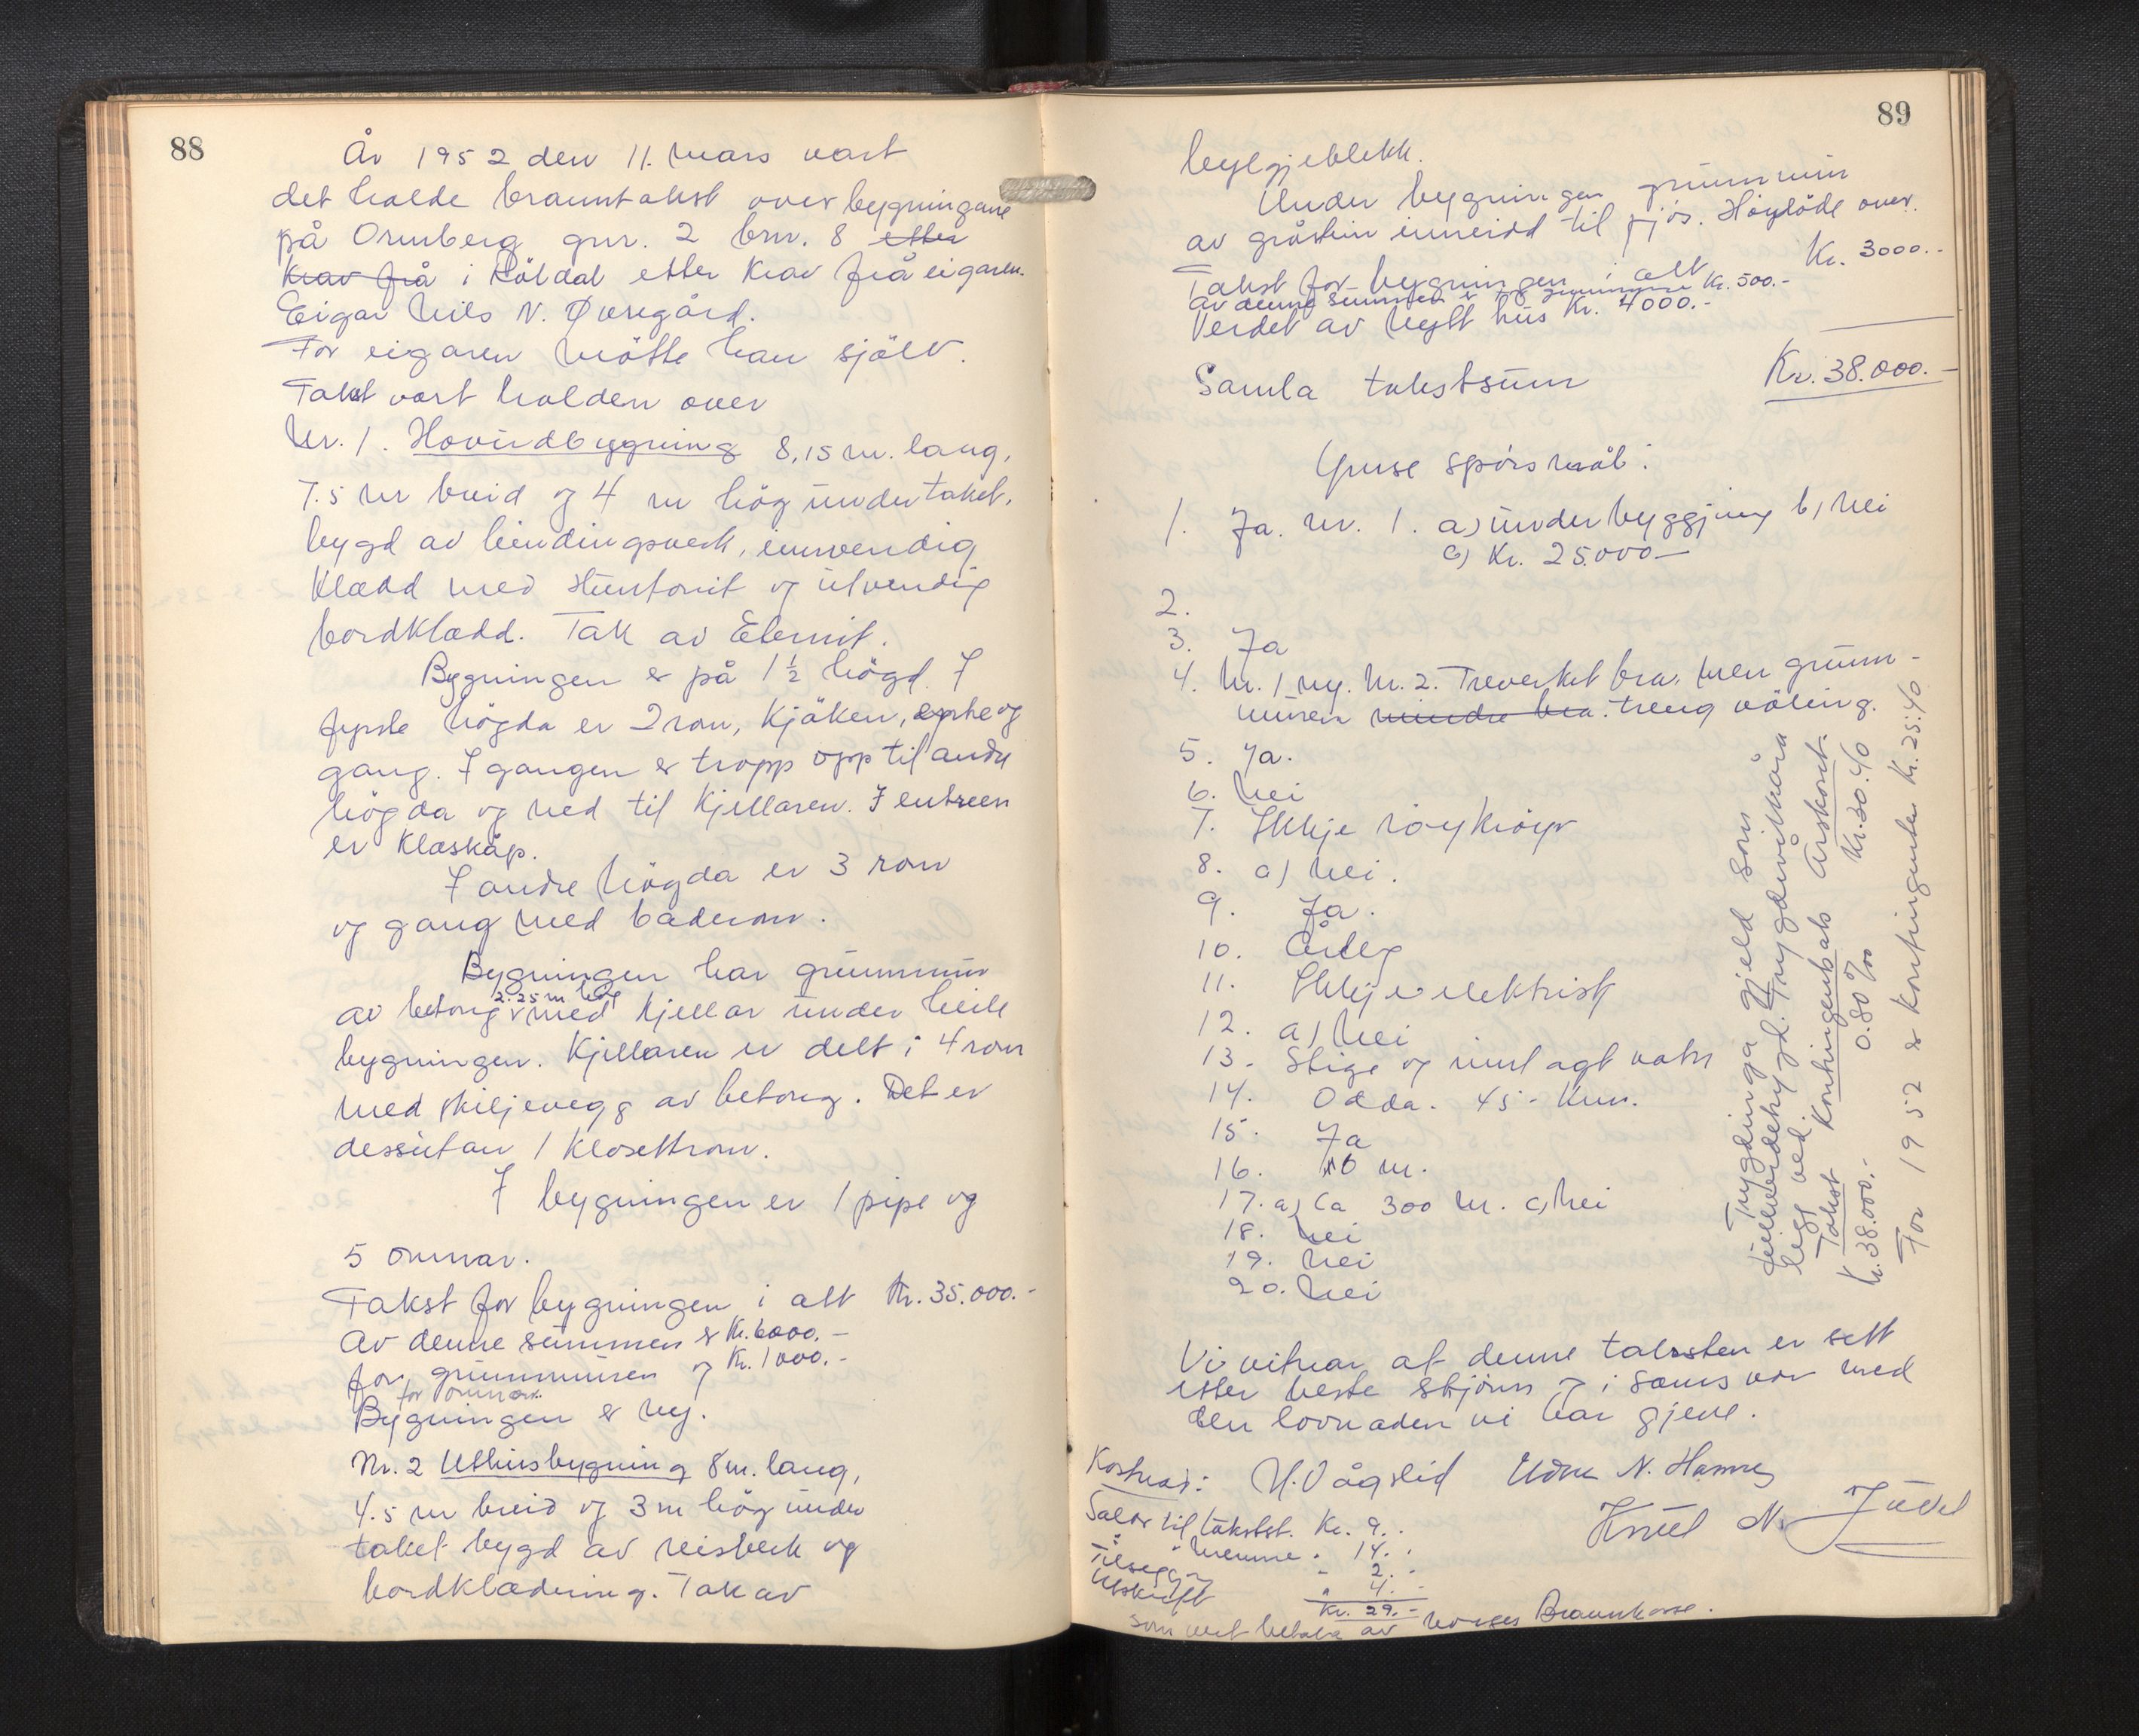 88
År 1952 den 11. mars vart
det halde branntakst over bygningane
på Ormberg gnr. 2 brn. 8 etter
Krav frå i Röldal etter Krav frå eigaren.
Eigar Nils N. Øvregård.
For eigaren mötte han sjölv.
Takst vart halden over
Nr. 1. Hovudbygning 8,15 m. lang,
7.5 m breid og 4 m hög under taket,
bygd av bindingsverk, innvendig
Klædd med Huntonit og utvendig
bordklædd. Tak av Eternit.
Bygningen er på 1 1/2 högd. I
fyrste högda er 2 rom, Kjöken, og
gang. I gangen er tropp opp til andre
högda og ned til Kjellaren. I entreen
er Klæskåp.
I andre högda er 3 rom
og gang med baderom.
Bygningen har grunnmur
av betong 2.25 m hög med Kjellar under heile
bygningen. Kjellaren er delt i 4 rom
med skiljevegg av betong. Det er
dessutan 1 Klosettrom.
I bygningen er 1 pipe og
5 omnar.
Takst for bygningen i alt Kr. 35.000.-
Av denne summen er Kr. 6000.-
for grunnmuren og Kr. 1000.-
for omnar.
Bygningen er ny.
Nr. 2 Uthusbygning 8 m. lang,
4.5 m breid og 3 m hög under
taket bygd av reisverk og
bordklædning. Tak av
89
bylgjeblekk.
Under bygningen grunnmur
av gråstein innreidd til fjös. Höylöde over.
Takst for bygningen i alt Kr. 3000.-
Av denne summen er for grunnmuren Kr. 500.-
Verdet av nytt hus Kr. 4000.-
Samla takstsum Kr. 38.000.-
Ymse spörsmål:
1. Ja. Nr. 1. a) underbyggjing b) Nei
c) Kr. 25.000-
2.
3. Ja
4. Nr. 1 ny. Nr. 2. Treverket bra, men grunn-
muren mindre bra. treng völing.
5. Ja.
6. Nei
7. Ikkje röykröyr
8. a) Nei.
9. Ja.
10. Årleg
11. Ikkje elektrisk
12. a) Nei
13. Stige og innlagt vatn
14. Odda. 45 - Km.
15. Ja
16. 10 m.
17. a) Ca 300 m. c) Nei
18. Nei
19. Nei
20. Nei
Trygdinga gjeld som
Trygdevilkåra
legg ved
Takst Kontingentsats Årskont.
Kr. 38.000.- 0.80 ‰ Kr. 30.40
For 1952 er Kontingenten Kr. 25.40
Vi vitnar at denne taksten er sett
etter beste skjönn og i samsvar med
den lovnaden vi har gjeve.
H. Vågslid N. Hamre
Knut N. Juvet
Kostnad:
Salær til takstst. Kr. 9.-
" " menne " 14.-
Tilseging " 2.-
Utskrift " 4.-
Kr. 29.-
som vert betala av Norges Brannkasse.